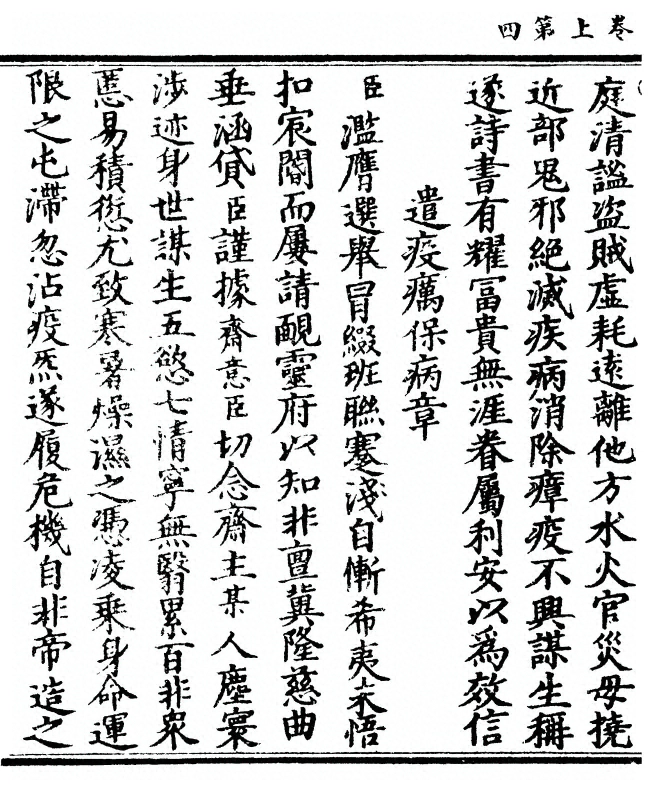 卷上第四
庭清謐盜賊虛耗遠離他方水火官災毋撓
近部鬼邪絕滅疾病消除瘴疫不興謀生稱
遂詩書有耀富貴無涯眷屬利安以為效信
遣疫癘保病章
臣濫膺選舉冒綴班聯蹇淺自慚希夷未悟
扣宸閽而屢請靦靈府以知非亶冀隆慈曲
垂涵貸臣謹據齋意臣切念齋主某人塵寰
涉迹身世謀生五慾七情寧無翳累百非眾
慝易積愆尤致寒暑燥濕之憑凌乘身命運
限之屯滯忽沾疫炁遂履危機自非帝造之